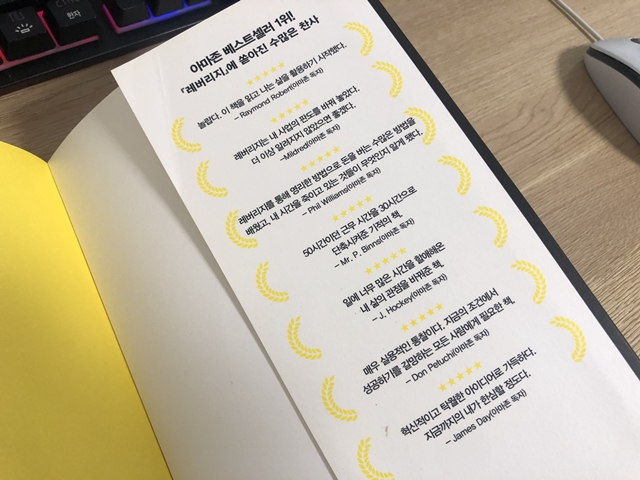 한자
아마존 베스트셀러 1위!!
『레버리지』에 쏟아진 수많은 찬사
★★★★★
놀랍다. 이 책을 읽고 나는 삶을 활용하기 시작했다.
– Raymond Robert(아마존 독자)
★★★★★
레버리지는 내 사업의 판도를 바꿔 놓았다.
더 이상 알려지지 않았으면 좋겠다.
–Mildred(아마존 독자)
★★★★★
레버리지를 통해 영리한 방법으로 돈을 버는 수많은 방법을
배웠고, 내 시간을 죽이고 있는 것들이 무엇인지 알게 됐다.
– Phil Williams(아마존 독자)
★★★★★
50시간이던 근무 시간을 30시간으로
단축시켜준 기적의 책.
– Mr. P. Binns(아마존 독자)
★★★★★
일에 너무 많은 시간을 할애해온
내 삶의 관점을 바꿔준 책.
– J. Hockey(아마존 독자)
★★★★★
매우 실용적인 통찰이다. 지금의 조건에서
성공하기를 갈망하는 모든 사람에게 필요한 책.
– Don Peluchi(아마존 독자)
★★★★★
혁신적이고 탁월한 아이디어로 가득하다.
지금까지의 내가 한심할 정도다.
– James Day(아마존 독자)